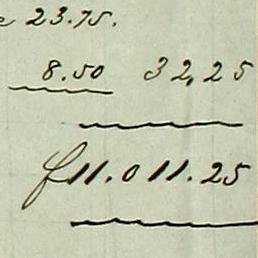 e 23.75.
8.50 32,25
f 11.011.25